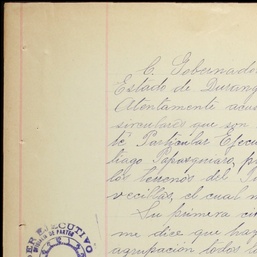 C. Gobernador
Estado de Durang
Atentamente acus
circulares que son
te Particular Ejecu
tiago Papasquiaro, p
los terrenos del P
vecillas, el cual m
Su primera cir
me dice que hag
agrupación todos l
DER EJECUTIVO